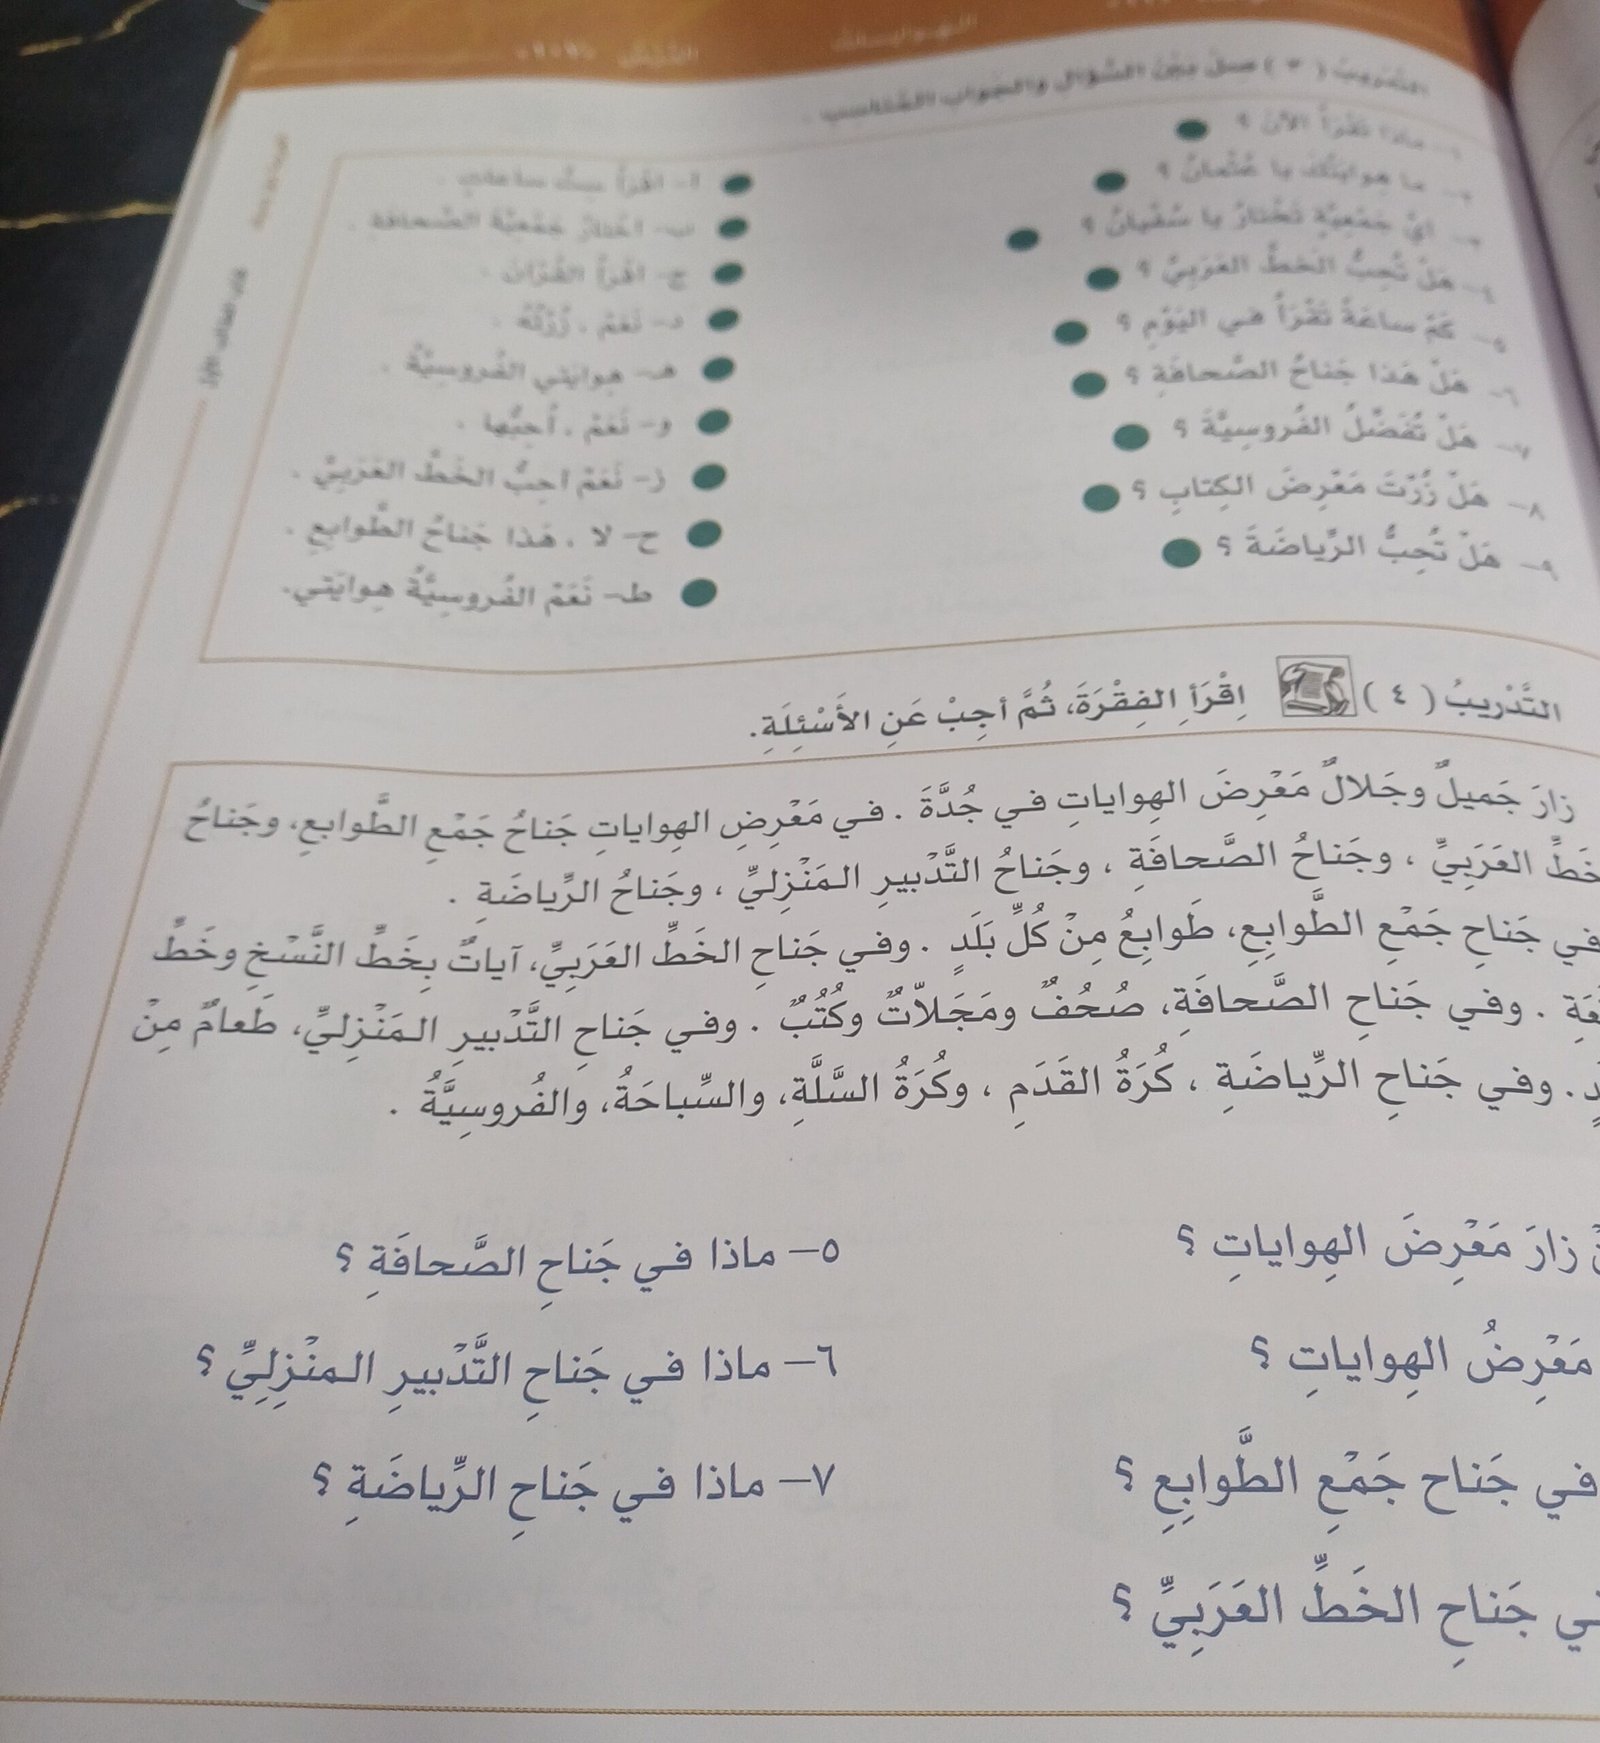 التدريب ( ٣ ) صل بين السؤال والجواب المناسب .
١- ماذا تَقْرَأُ الآنَ ؟
٢- ما هِوايَتُكَ يا عُثْمانُ ؟
٣- أيَّ جَمْعِيَّةٍ تَخْتارُ يا سُفْيانُ ؟
٤- هَلْ تُحِبُّ الخَطَّ العَرَبِيَّ ؟
٥- كَمْ ساعَةً تَقْرَأُ في اليَوْمِ ؟
٦- هَلْ هَذا جَناحُ الصَّحافَةِ ؟
٧- هَلْ تُفَضِّلُ الفُروسِيَّةَ ؟
٨- هَلْ زُرْتَ مَعْرِضَ الكِتابِ ؟
٩- هَلْ تُحِبُّ الرِّياضَةَ ؟
أ- أقْرَأُ سِتَّ ساعاتٍ .
ب- أخْتارُ جَمْعِيَّةَ الصَّحافَةِ .
ج- أقْرَأُ القُرْآنَ .
د- نَعَمْ ، زُرْتُهُ .
هـ- هِوايَتي الفُروسِيَّةُ .
و- نَعَمْ ، أُحِبُّها .
ز- نَعَمْ أُحِبُّ الخَطَّ العَرَبِيَّ .
ح- لا ، هَذا جَناحُ الطَّوابِعِ .
ط- نَعَمْ الفُروسِيَّةُ هِوايَتي.
التَّدْريبُ ( ٤ ) اِقْرَأِ الفِقْرَةَ، ثُمَّ أجِبْ عَنِ الأَسْئِلَةِ.
زارَ جَميلٌ وجَلالٌ مَعْرِضَ الهِواياتِ في جُدَّةَ . في مَعْرِضِ الهِواياتِ جَناحُ جَمْعِ الطَّوابعِ، وجَناحُ
خَطِّ العَرَبِيِّ ، وجَناحُ الصَّحافَةِ ، وجَناحُ التَّدْبيرِ المَنْزِليِّ ، وجَناحُ الرِّياضَةِ .
في جَناحِ جَمْعِ الطَّوابِعِ، طَوابِعُ مِنْ كُلِّ بَلَدٍ . وفي جَناحِ الخَطِّ العَرَبِيِّ، آياتٌ بِخَطِّ النَّسْخِ وخَطِّ
قْعَةِ . وفي جَناحِ الصَّحافَةِ، صُحُفٌ ومَجَلاّتٌ وكُتُبٌ . وفي جَناحِ التَّدْبيرِ المَنْزِليِّ، طَعامٌ مِنْ
دٍ . وفي جَناحِ الرِّياضَةِ ، كُرَةُ القَدَمِ ، وكُرَةُ السَّلَّةِ، والسِّباحَةُ، والفُروسِيَّةُ .
زارَ مَعْرِضَ الهِواياتِ ؟
مَعْرِضُ الهِواياتِ ؟
في جَناح جَمْعِ الطَّوابِعِ ؟
في جَناحِ الخَطِّ العَرَبِيِّ ؟
٥- ماذا في جَناحِ الصَّحافَةِ ؟
٦- ماذا في جَناحِ التَّدْبيرِ المنْزِلِيِّ ؟
٧- ماذا في جَناحِ الرِّياضَةِ ؟